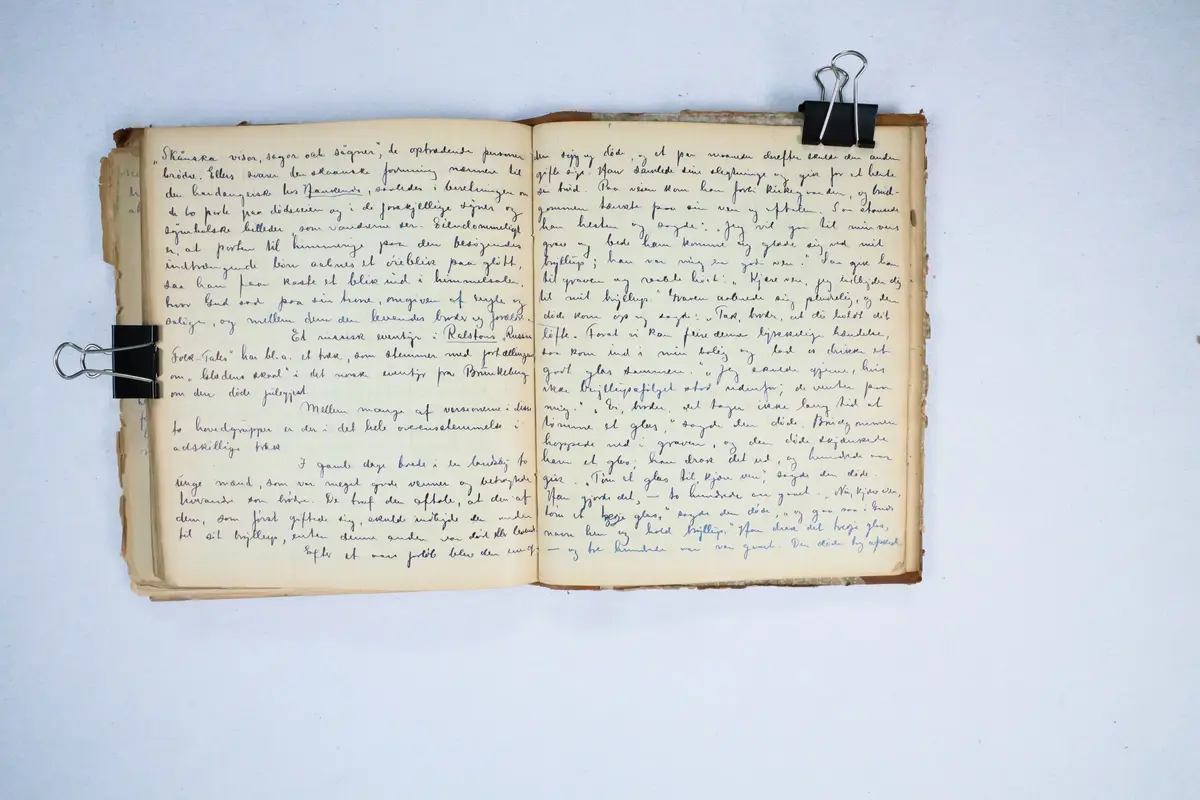 "Skånska visor, sagor och sägner", de optrædende personer
brödre. Ellers svarer den skaanske formning nærmere til
den hardangerske hos Haukenæs, saaledes i beretningen om
de to porte paa dödsveien og i de forskjellige syner og
symbolske billeder, som vandrerne ser. Eiendommeligt
er, at porten til himmerige paa den besögendes
indtrængende bön aabnes et öieblik paa glött,
saa han faar kaste et blik ind i himmelsalen,
hvor Gud sad paa sin trone, omgiven af engle og
salige, og mellem dem den levendes broder og forældre.
Et russisk eventyr i Ralstons "Russian
Folk-Tales" har bl.a. et træk, som stemmer med fortællingen
om "blodens skaal" i det norske eventyr fra Brunkeberg
om den döde julegjest.
Mellem mange af versionerne i disse
to hovedgrupper er der i det hele overensstemmelse i
adskillige træk.
I gamle dage boede i en landsby to
unge mænd, som var meget gode venner og betragtede
hverandre som brödre. De traf den aftale, at den af
dem, som först giftede sig, skulde indbyde den anden
til sit bryllup, enten denne anden var död eller levende.
Efter et aars forlöb blev den ene af
dem syg og döde, og et par maaneder derefter skulde den anden
gifte sig. Han samlede sine slegtninge og gav for at hente
sin brud. Paa veien kom han forbi kirkegaarden, og brud-
gommen tænkte paa sin ven og aftalen. Saa standsede
han hesten og sagde: "Jeg vil gaa til min vens
grav og bede ham komme og glæde sig ved mit
bryllup; han var mig en god ven." Saa gik han
til graven og raabte höit: "Kjære ven, jeg indbyder dig
til mit bryllup." Graven aabnede sig pludselig, og den
döde kom op og sagde: "Tak, broder, at du holdt dit
löfte. Forat vi kan feire denne lykkelige hændelse,
saa kom ind i min bolig og lad os drikke et
godt glas sammen." "Jeg skulde gjerne, hvis
ikke bryllupsfölget stod udenfor; de venter paa
mig." "Ei, broder, det tager ikke lang tid at
tömme et glas," sagde den döde. Brudgommen
hoppede ned i graven, og den döde skjænkede
ham et glas; han drak det ud, og hundrede aar
gik. "Töm et glas til, kjære ven," sagde den döde.
Han gjorde det, — to hundrede aar gik. "Nu, kjære ven,
töm et tredje glas," sagde den döde, "og gaa saa i Guds
navn hen og hold bryllup." Han drak det tredje glas,
— og tre hundrede aar var gaaet. Den döde tog afsked